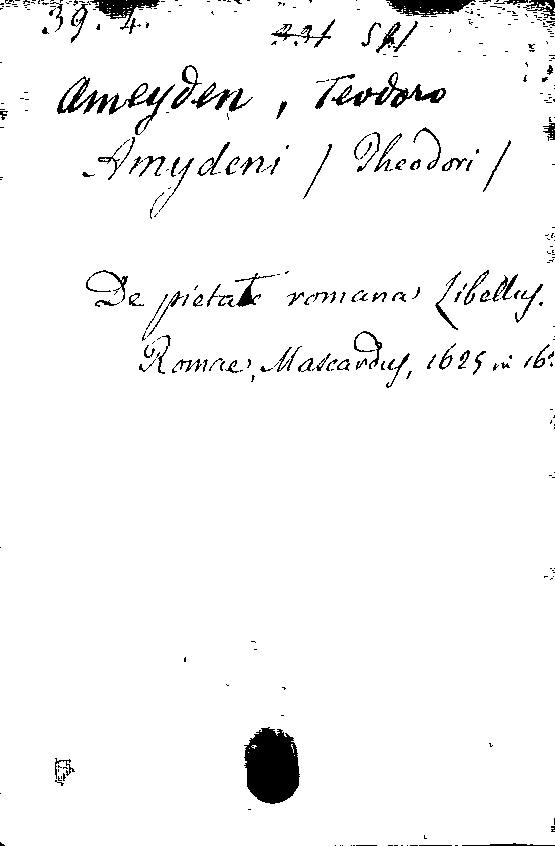 39. 4.
Ameyden, Teodoro
Amydeni / Theodori /
De pietate romana Libellus.
Romae, Mascardus, 1625 in 16.